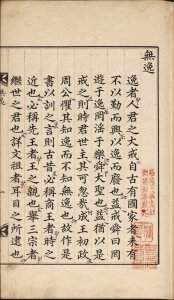 無逸
逸者人君之大戒自古有國家者未有
不以勤而興以逸而廢也益戒舜曰罔
遊于逸罔滛于樂舜大聖也益猶以是
戒之則時君世主其可忽哉成王初政
周公懼其知逸而不知無逸也故作是
書以訓之言則古昔必稱商王者時之
近也必稱先王者王之親也舉三宗者
繼世之君也詳文祖者耳目之所逮也